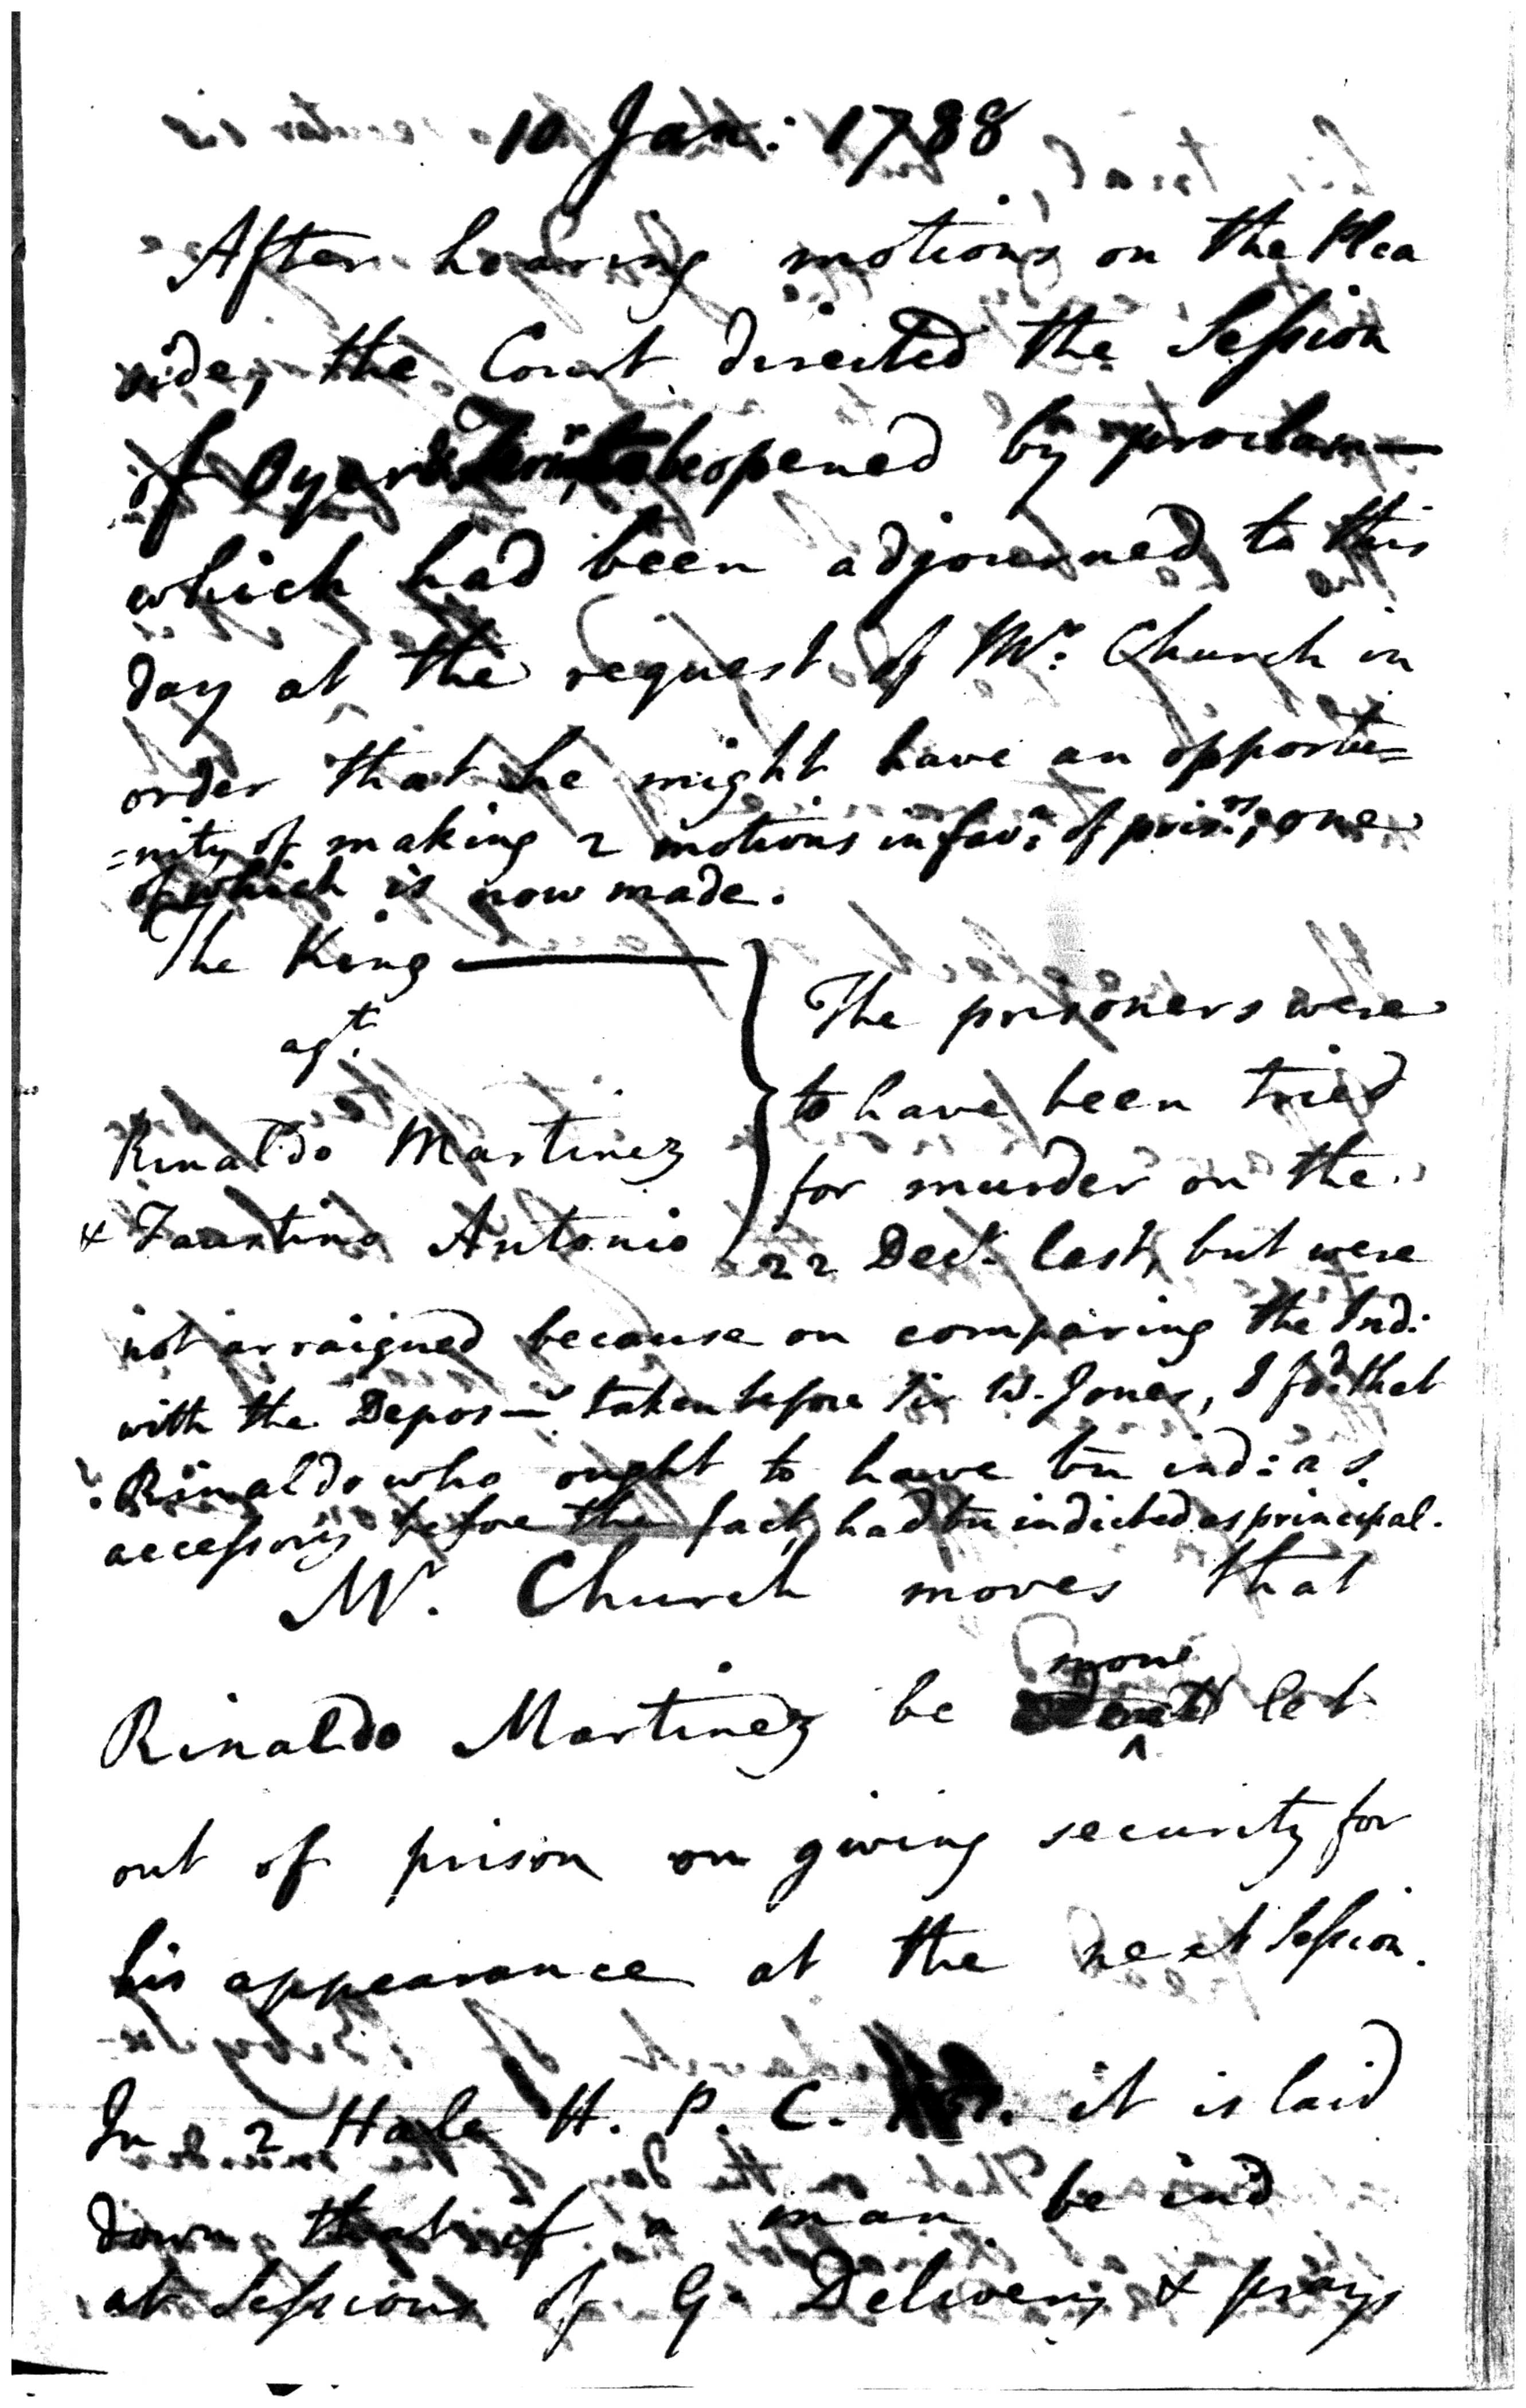 10 Jan: 1788
After hearing motions on the Plea
side, the Court directed the Session
of Oyer & Termr to be opened by proclam—
which had been adjourned to this
day at the request of Mr: Church in
order that he might have an opportu=
=nity of making 2 motions in favr: of prisrs, one
of which is now made.
The King
agt.
Rinaldo Martinez
& Faustino Antonio
The prisoners were
to have been tried
for murder on the
22 Decr. last, but were
not arraigned because on comparing the Ind:
with the Depos—s taken before Sir W. Jones, I fd. that
Rinaldo who ought to have bn ind: as
accessory before the fact, had bn indicted as principal.
Mr. Church moves that
Rinaldo Martinez be let
out of prison on giving security for
his appearance at the next Session.
In 2 Hale H. P. C. it is laid
down that if a man be ind
at Sessions of G. Delivery & prays